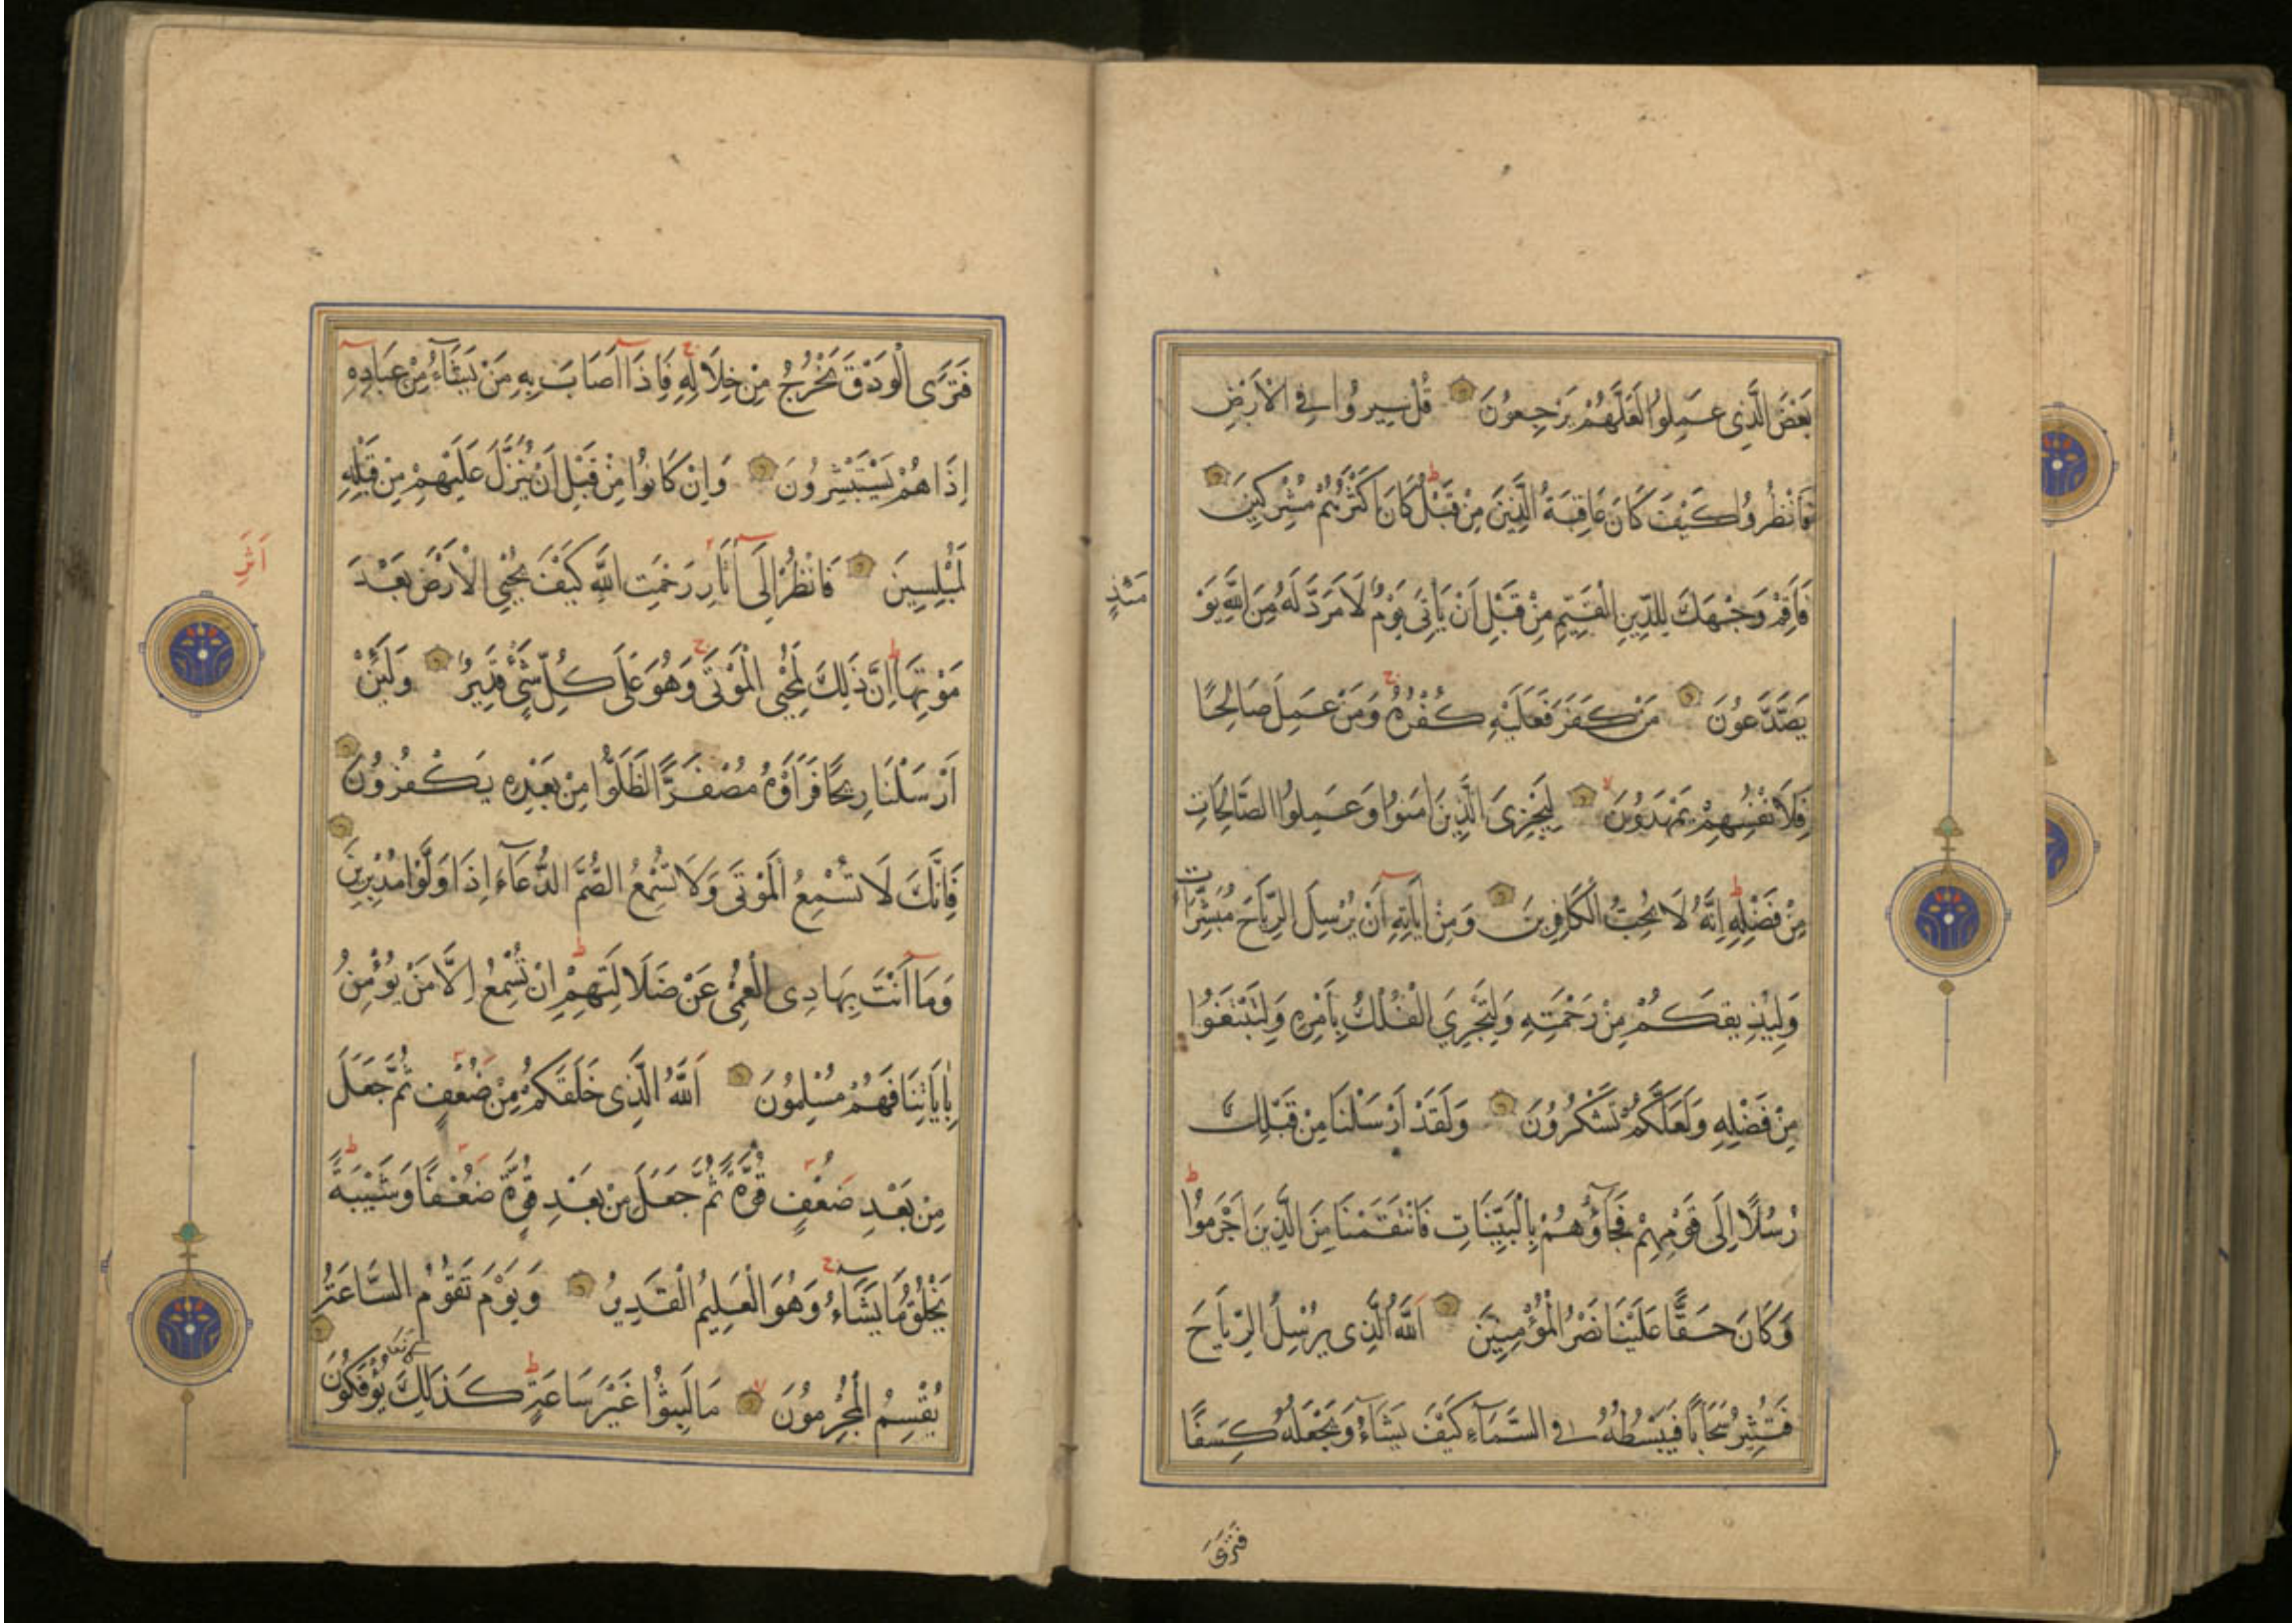 بَعْضَ الَّذِى عَمِلُوا لَعَلَّهُمْ يَرْجِعُونَ قُلْ سِيرُوا فِى الْاَرْضِ
فَانْظُرُوا كَيْفَ كَانَ عَاقِبَةُ الَّذِينَ مِنْ قَبْلُ ط كَانَ اَكْثَرُهُمْ مُشْرِكِينَ
فَاَقِمْ وَجْهَكَ لِلدِّينِ الْقَيِّمِ مِنْ قَبْلِ اَنْ يَاْتِىَ يَوْمٌ لَا مَرَدَّ لَهُ مِنَ اللَّهِ يَوْ
مَئِذٍ
يَصَّدَّعُونَ مَنْ كَفَرَ فَعَلَيْهِ كُفْرُهُ ج وَمَنْ عَمِلَ صَالِحًا
فَلِاَنْفُسِهِمْ يَمْهَدُونَ لا لِيَجْزِىَ الَّذِينَ اٰمَنُوا وَعَمِلُوا الصَّالِحَاتِ
مِنْ فَضْلِهِ ط اِنَّهُ لَا يُحِبُّ الْكَافِرِينَ وَمِنْ اٰيَاتِهِ اَنْ يُرْسِلَ الرِّيَاحَ مُبَشِّرَاتٍ
وَلِيُذِيقَكُمْ مِنْ رَحْمَتِهِ وَلِتَجْرِىَ الْفُلْكُ بِاَمْرِهِ وَلِتَبْتَغُوا
مِنْ فَضْلِهِ وَلَعَلَّكُمْ تَشْكُرُونَ وَلَقَدْ اَرْسَلْنَا مِنْ قَبْلِكَ
رُسُلًا اِلَى قَوْمِهِمْ فَجَآؤُهُمْ بِالْبَيِّنَاتِ فَانْتَقَمْنَا مِنَ الَّذِينَ اَجْرَمُوا ط
وَكَانَ حَقًّا عَلَيْنَا نَصْرُ الْمُؤْمِنِينَ اَللَّهُ الَّذِى يُرْسِلُ الرِّيَاحَ
فَتُثِيرُ سَحَابًا فَيَبْسُطُهُ فِى السَّمَآءِ كَيْفَ يَشَآءُ وَيَجْعَلُهُ كِسَفًا
فَتَرَى
فَتَرَى الْوَدْقَ يَخْرُجُ مِنْ خِلَالِهِ ج فَاِذَآ اَصَابَ بِهِ مَنْ يَشَآءُ مِنْ عِبَادِهِ
اِذَا هُمْ يَسْتَبْشِرُونَ وَاِنْ كَانُوا مِنْ قَبْلِ اَنْ يُنَزَّلَ عَلَيْهِمْ مِنْ قَبْلِهِ
لَمُبْلِسِينَ فَانْظُرْ اِلَى اٰثَارِ رَحْمَتِ اللَّهِ كَيْفَ يُحْيِى الْاَرْضَ بَعْدَ
اَثَرِ
مَوْتِهَا ط اِنَّ ذَلِكَ لَمُحْيِى الْمَوْتَى ج وَهُوَ عَلَى كُلِّ شَىْءٍ قَدِيرٌ وَلَئِنْ
اَرْسَلْنَا رِيحًا فَرَاَوْهُ مُصْفَرًّا لَظَلُّوا مِنْ بَعْدِهِ يَكْفُرُونَ
فَاِنَّكَ لَا تُسْمِعُ الْمَوْتَى وَلَا تُسْمِعُ الصُّمَّ الدُّعَآءَ اِذَا وَلَّوْا مُدْبِرِينَ
وَمَآ اَنْتَ بِهَادِى الْعُمْىِ عَنْ ضَلَالَتِهِمْ ط اِنْ تُسْمِعُ اِلَّا مَنْ يُؤْمِنُ
بِاٰيَاتِنَا فَهُمْ مُسْلِمُونَ اَللَّهُ الَّذِى خَلَقَكُمْ مِنْ ضُعْفٍ ثُمَّ جَعَلَ
مِنْ بَعْدِ ضُعْفٍ قُوَّةً ثُمَّ جَعَلَ مِنْ بَعْدِ قُوَّةٍ ضُعْفًا وَشَيْبَةً ط
يَخْلُقُ مَا يَشَآءُ ج وَهُوَ الْعَلِيمُ الْقَدِيرُ وَيَوْمَ تَقُومُ السَّاعَةُ
يُقْسِمُ الْمُجْرِمُونَ لا مَا لَبِثُوا غَيْرَ سَاعَةٍ ط كَذَلِكَ كَانُوا يُؤْفَكُونَ